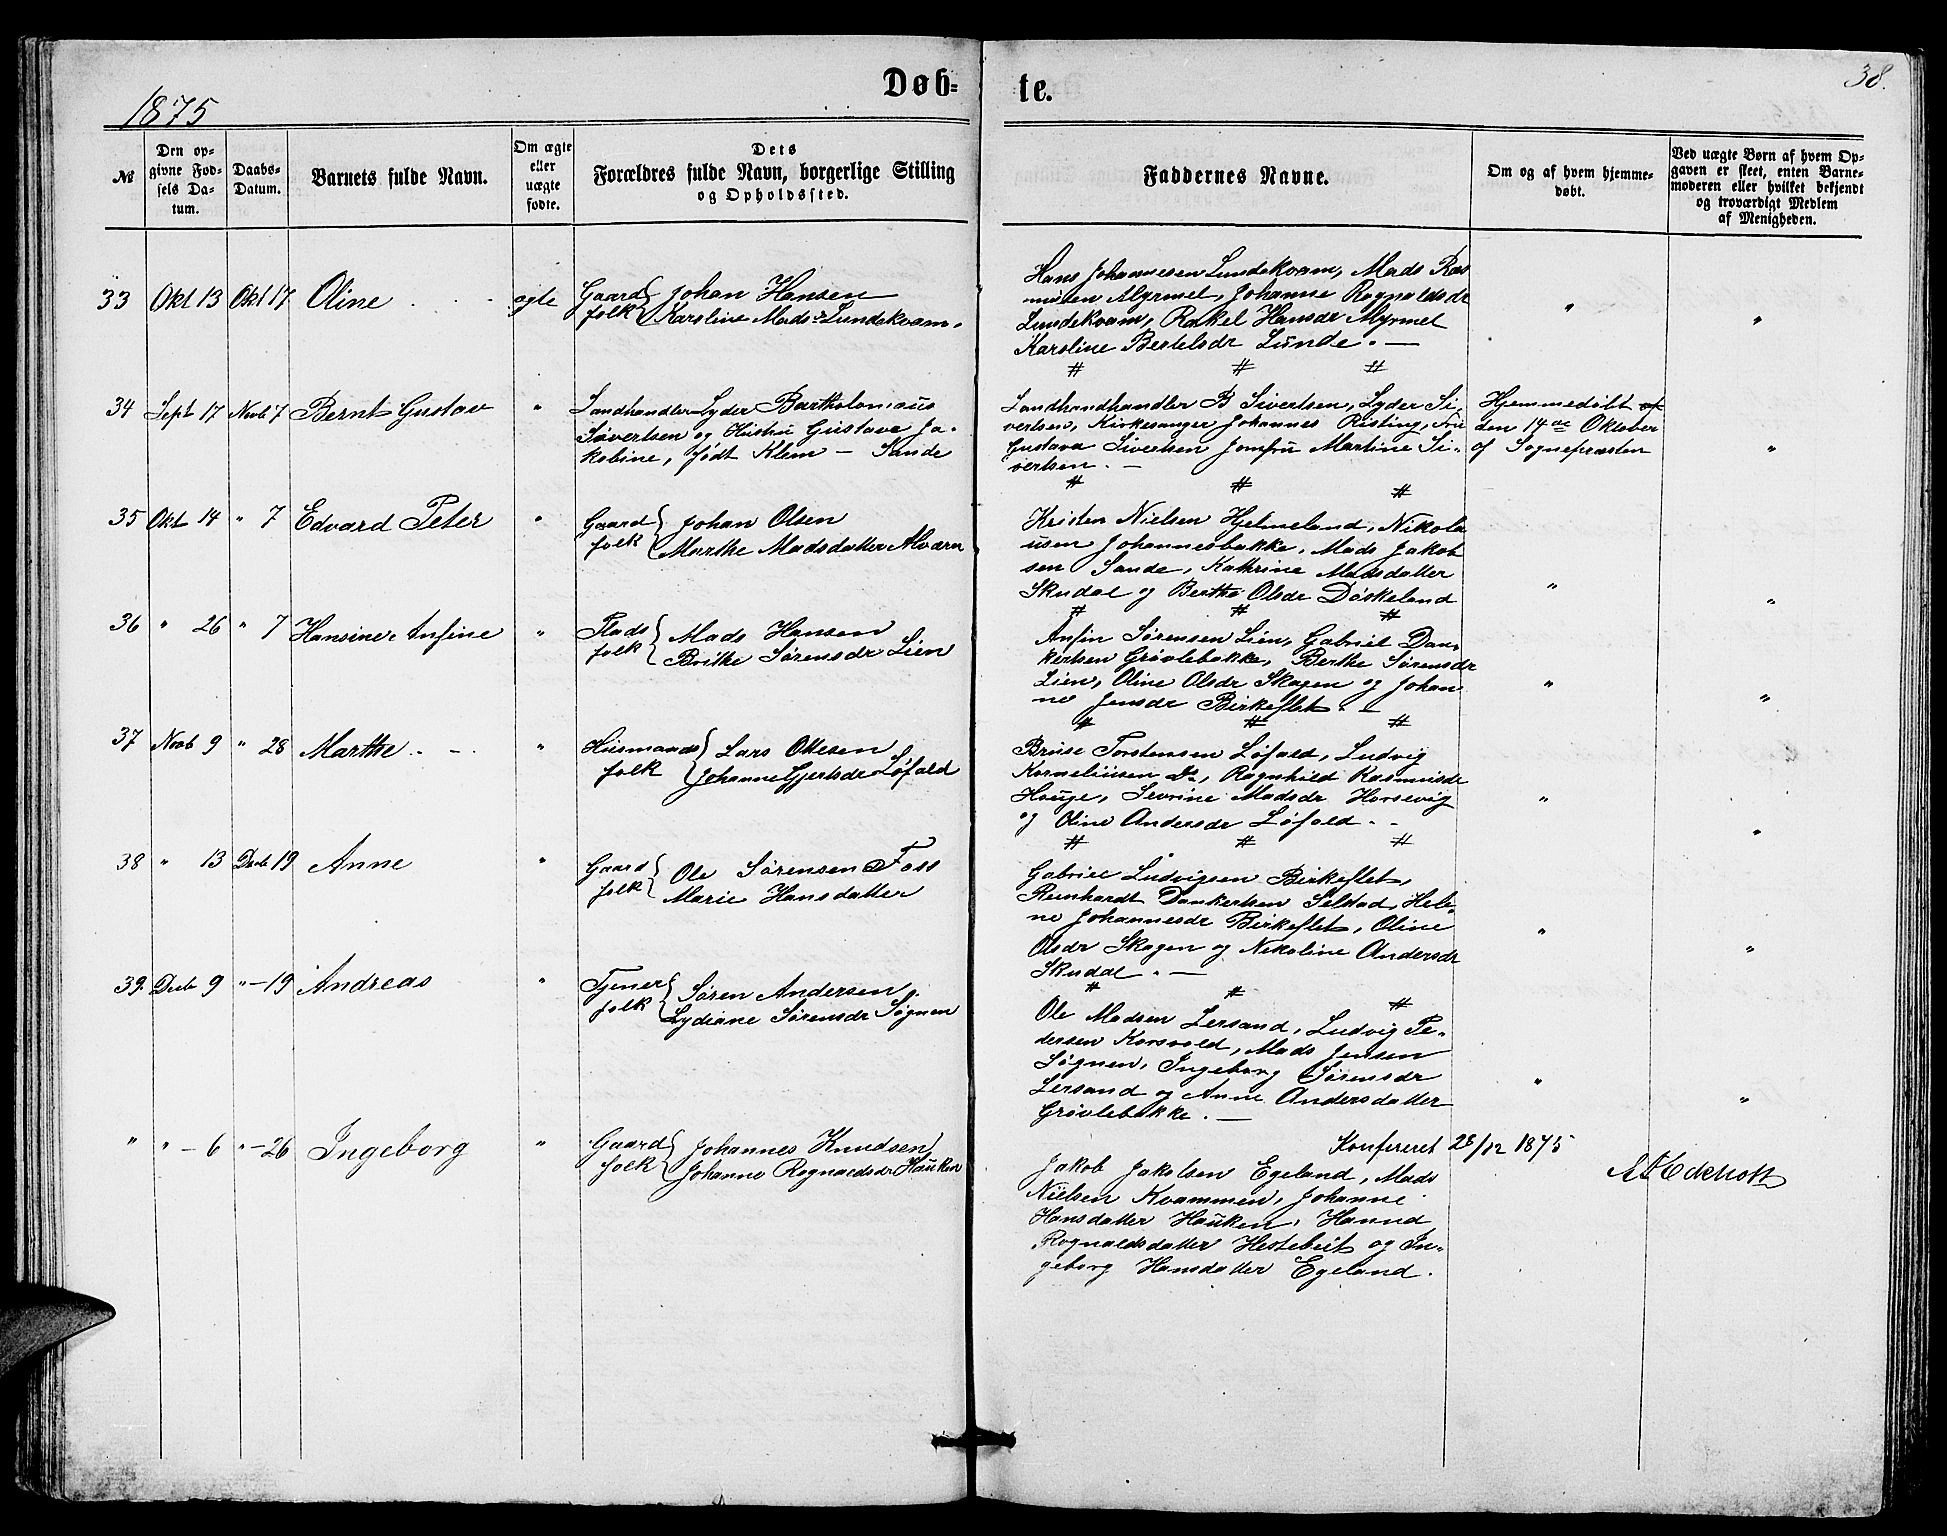 1875
Døb=
te.
38.
№
Den op=
givne Fød=
sels Da=
tum.
Daabs=
Datum.
Barnets fulde Navn.
Om ægte
eller
uægte
fødte.
Dets
Forældres fulde Navn, borgerlige Stilling
og Opholdssted.
Faddernes Navne.
Om og af hvem hjemme=
døbt.
Ved uægte Børn af hvem Op=
gaven er skeet, enten Barne=
moderen eller hvilket bekjendt
og troværdigt Medlem
af Menigheden.
33 Okt 13 Okt 17 Oline ægte Gaard folk { Johan Hansen
Karoline Madsdr Lundekvam.
Hans Johannesen Lundekvam, Mads Ras
musen Myrmel, Johanne Rognaldsdr
Lundekvam, Rakel Hansdr Myrmel
Karoline Bertelsdr Lunde. —
34 Sept 17 Novb 7 Bernt Gustav " Landhandler Lyder Bartholomæus
Sivertsen og Hustru Gustava Ja-
kobine, født Klem — Sande
Landhandhandler B Sivertsen, Lyder Si-
vertsen, Kirkesanger Johannes Risting, Fru
Gustava Sivertsen Jomfru Martine Si-
vertsen. —
Hjemmedøbt
den 14de Oktober
af Sognepræsten
35 Okt 14 " 7 Edvard Peter " Gaard folk { Johan Olsen
Marthe Madsdatter Alværn
Kristen Nielsen Hjelmeland, Nikola
usen Johannesbakke, Mads Jakob
sen Sande, Kathrine Madsdatter
Skudal og Berthe Olsdr Døskeland
36 " 26 " 7 Hansine Anfine " Plads folk { Mads Hansen
Brithe Sørensdr Lien
Anfin Sørensen Lien, Gabriel Dan-
kertsen Grøvlebakke, Berthe Sørensdr
Lien, Oline Olsdr Skagen og Johan
ne Jensdr Birkeflet. —
37 Novb 9 " 28 Marthe " Husmands folk { Lars Ottesen
Johanne Gjertsdr Løfald
Bruse Torstensen Løfald, Ludvig
Korneliusen Do, Ragnhild Rasmusdr
Hauge, Sevrine Madsdr Horsevig
og Oline Andersdr Løfald. -
38 " 13 Decb 19 Anne " Gaard folk { Ole Sørensen Foss
Marie Hansdatter
Gabriel Ludvigsen Birkeflet,
Reinhardt Dankertsen Selstad, Hele-
ne Johannesdr Birkeflet, Oline
Olsdr Skagen og Nikoline Andersdr
Skudal. —
39. Decb 9 " — 19 Andreas " Tjener folk { Søren Andersen
Lydiane Sørensdr Søgnen
Ole Madsen Lersand, Ludvig Pe-
dersen Korsvold, Mads Jensen
Søgnen, Ingeborg Sørensdr
Lersand og Anne Andersdatter
Grøvlebakke. —
" " — 6 " — 26 Ingeborg " Gaard folk { Johannes Knudsen
Johanne Rognaldsdr Hauken
Konfereret 28/12 1875
Jakob Jakobsen Egeland, Mads
Nielsen Kvammen, Johanne
Hansdatter Hauken, Hanna
Rognaldsdatter Hestebeit og In-
geborg Hansdatter Egeland.